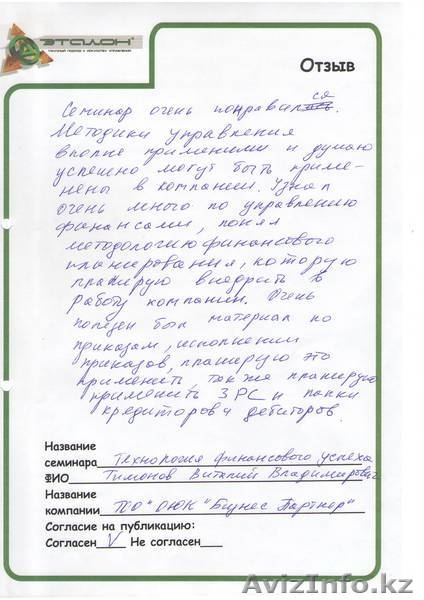 ЭТАЛОН
Отзыв
Семинар очень понравился.
Методики управления
вполне применимы и думаю
успешно могут быть приме-
нены в компании. Узнал
очень много по управлению
финансами, понял
методологию финансового
планирования, которую
планирую внедрить в
работу компании. Очень
полезен был материал по
приказам, исполнении
приказов, планирую это
применить, также планирую
применить ЗРС и папки
кредиторов и дебиторов.
Название
семинара Технология финансового успеха
ФИО Тимонов Виталий Владимирович
Название
компании ТОО "ОЮК "Бизнес Партнер"
Согласие на публикацию:
Согласен V Не согласен
AvizInfo.kz